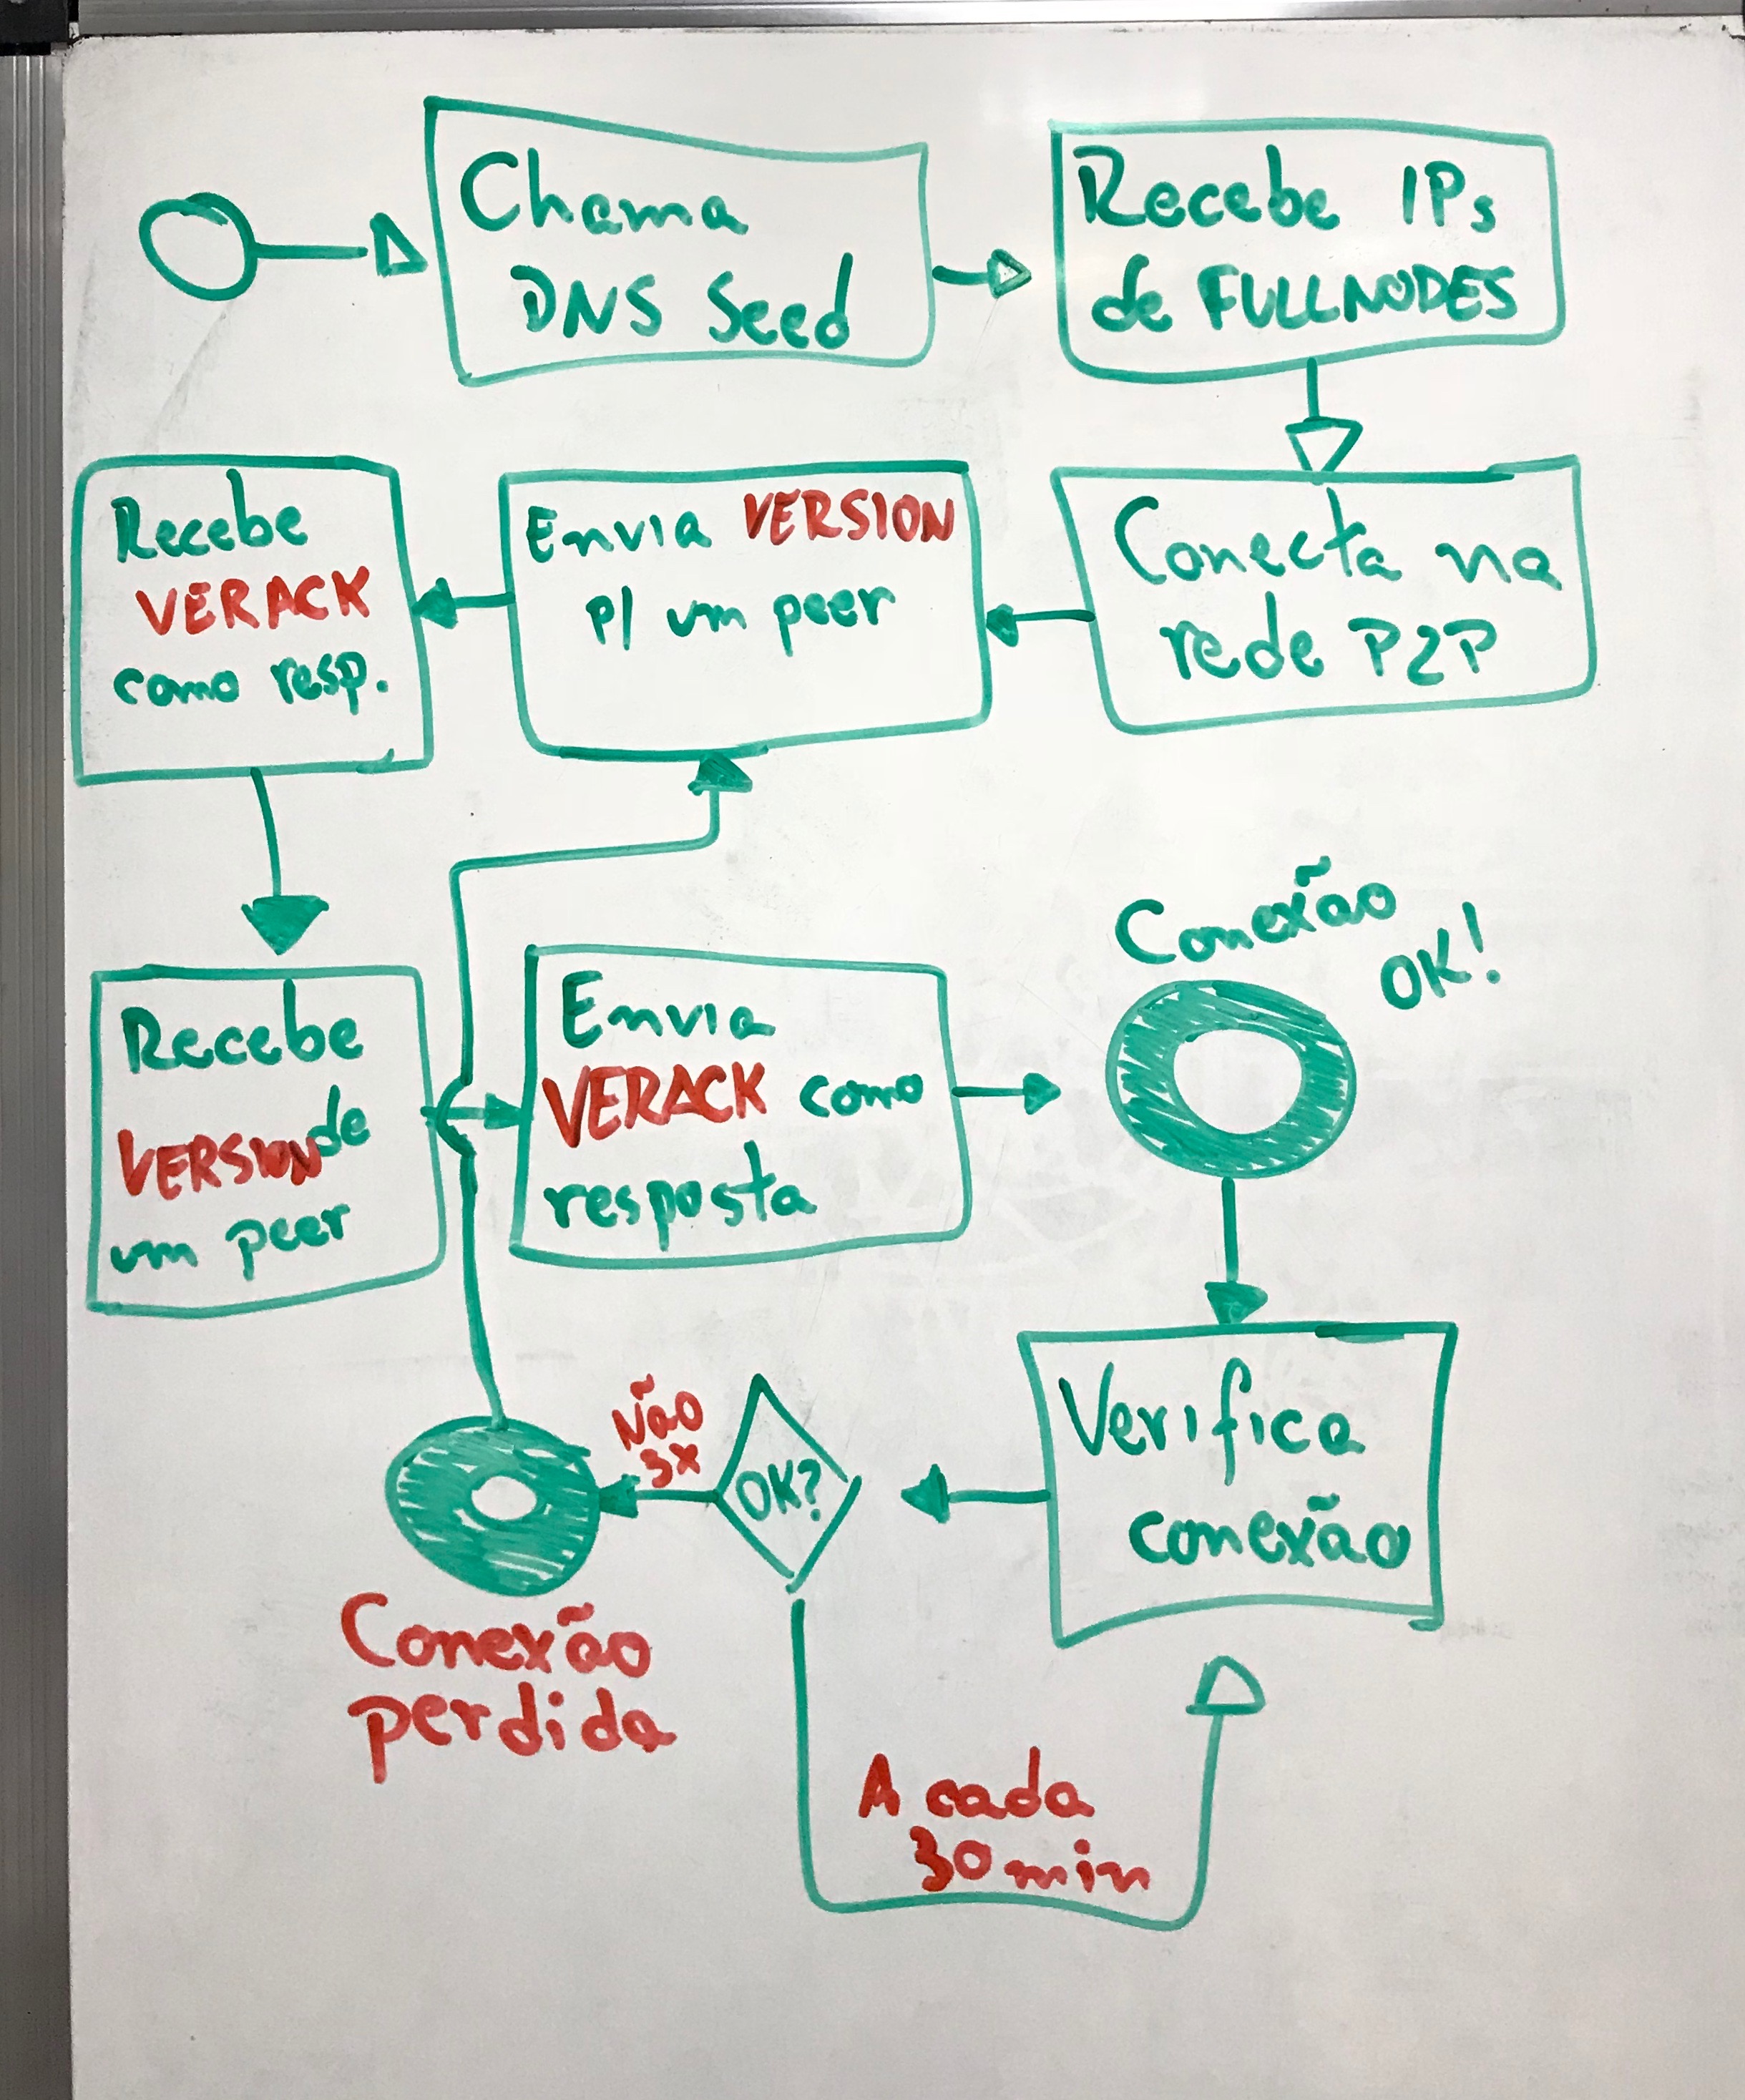 Chama
DNS Seed
Recebe IPs
de FULLNODES
Conecta na
rede P2P
Envia VERSION
p/ um peer
Recebe
VERACK
como resp.
Recebe
VERSION de
um peer
Envia
VERACK como
resposta
Conexão
OK!
Verifica
conexão
OK?
Não
3x
Conexão
perdida
A cada
30 min